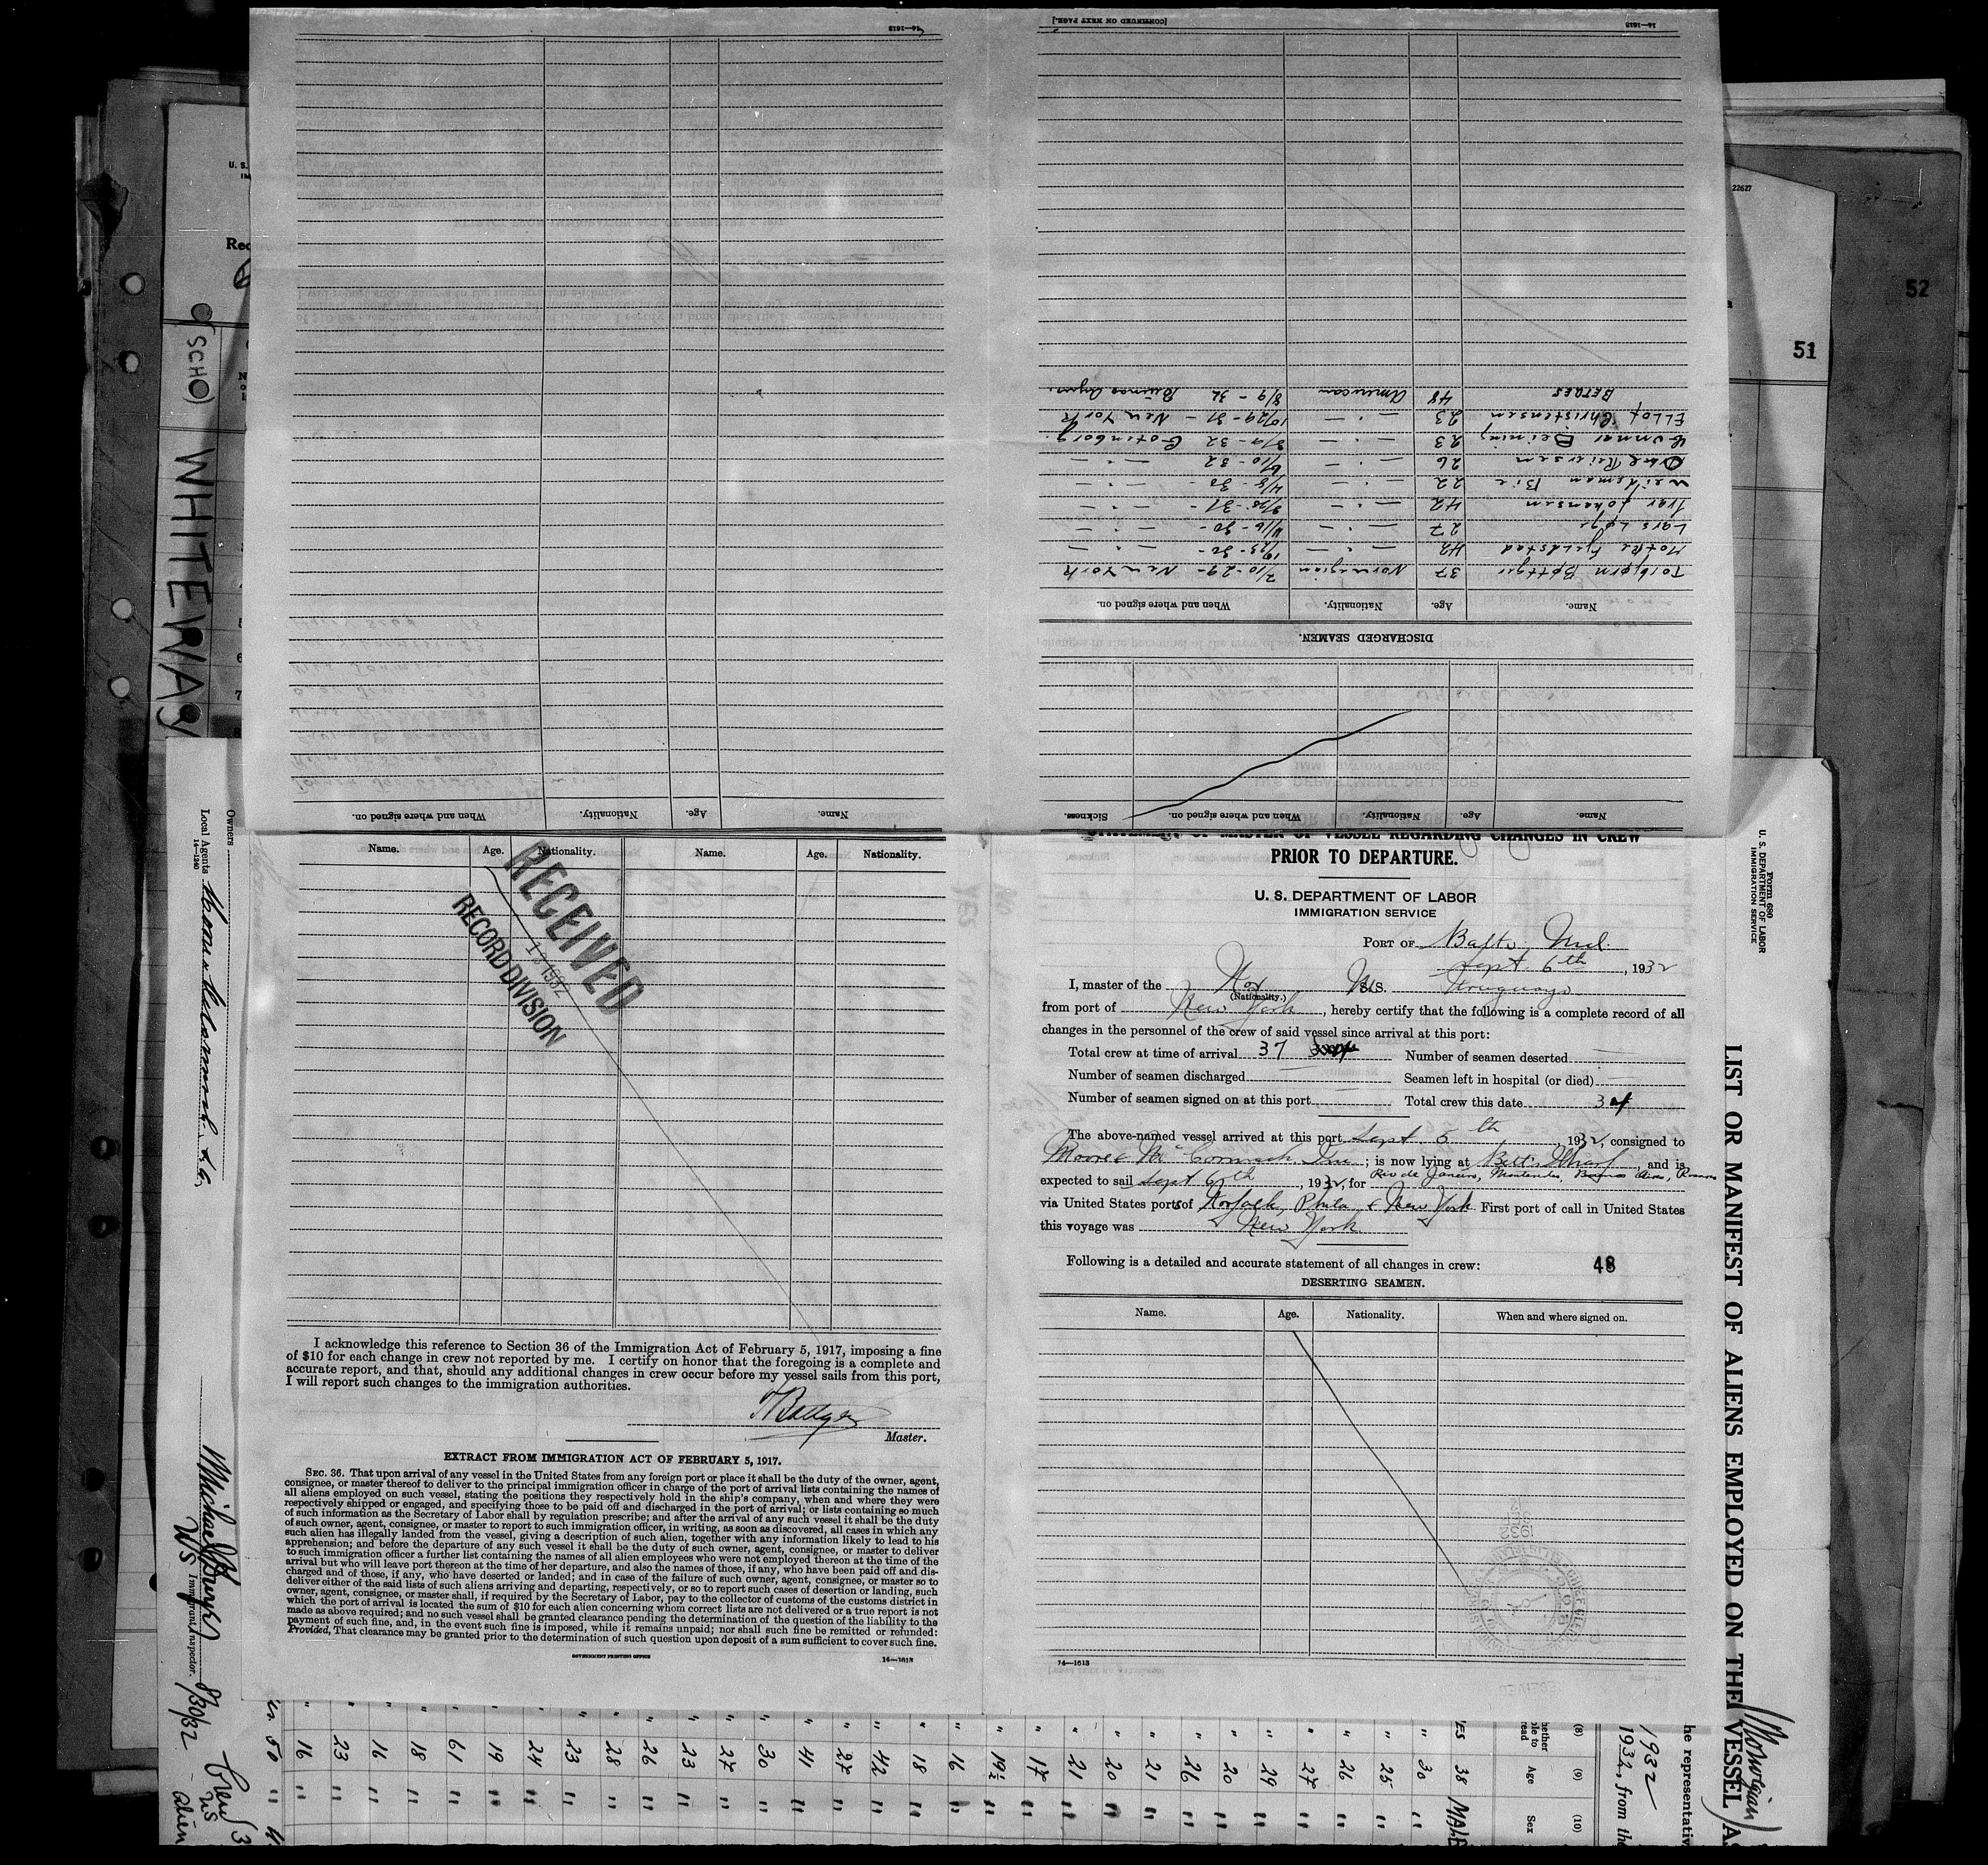 STATEMENT OF MASTER OF VESSEL REGARDING CHANGES IN CREW
PRIOR TO DEPARTURE.
U. S. DEPARTMENT OF LABOR
IMMIGRATION SERVICE
PORT OF Balto, Md.
Sept. 6th, 1932
I, master of the Nor M.S. Uruguayo
(Nationality.)
from port of New York, hereby certify that the following is a complete record of all
changes in the personnel of the crew of said vessel since arrival at this port:
Total crew at time of arrival 37 Number of seamen deserted
Number of seamen discharged Seamen left in hospital (or died)
Number of seamen signed on at this port Total crew this date 34
The above-named vessel arrived at this port Sept. 5th, 1932, consigned to
Moore & McCormack Inc; is now lying at Betts Wharf, and is
expected to sail Sept 6th, 1932, for Rio de Janeiro, Buenos Aires,
via United States ports of Norfolk, Phila & New York First port of call in United States
this voyage was New York
Following is a detailed and accurate statement of all changes in crew: 48
DESERTING SEAMEN.
Name. Age. Nationality. When and where signed on.
14—1613
Name. Age. Nationality. Name. Age. Nationality.
RECEIVED
1932
RECORD DIVISION
I acknowledge this reference to Section 36 of the Immigration Act of February 5, 1917, imposing a fine
of $10 for each change in crew not reported by me. I certify on honor that the foregoing is a complete and
accurate report, and that, should any additional changes in crew occur before my vessel sails from this port,
I will report such changes to the immigration authorities.
Master.
EXTRACT FROM IMMIGRATION ACT OF FEBRUARY 5, 1917.
SEC. 36. That upon arrival of any vessel in the United States from any foreign port or place it shall be the duty of the owner, agent,
consignee, or master thereof to deliver to the principal immigration officer in charge of the port of arrival lists containing the names of
all aliens employed on such vessel, stating the positions they respectively hold in the ship's company, when and where they were
respectively shipped or engaged, and specifying those to be paid off and discharged in the port of arrival; or lists containing so much
of such information as the Secretary of Labor shall by regulation prescribe; and after the arrival of any such vessel it shall be the duty
of such owner, agent, consignee, or master to report to such immigration officer, in writing, as soon as discovered, all cases in which any
such alien has illegally landed from the vessel, giving a description of such alien, together with any information likely to lead to his
apprehension; and before the departure of any such vessel it shall be the duty of such owner, agent, consignee, or master to deliver
to such immigration officer a further list containing the names of all alien employees who were not employed thereon at the time of the
arrival but who will leave port thereon at the time of her departure, and also the names of those, if any, who have been paid off and dis-
charged and of those, if any, who have deserted or landed; and in case of the failure of such owner, agent, consignee, or master so to
deliver either of the said lists of such aliens arriving and departing, respectively, or so to report such cases of desertion or landing, such
owner, agent, consignee, or master shall, if required by the Secretary of Labor, pay to the collector of customs of the customs district in
which the port of arrival is located the sum of $10 for each alien concerning whom correct lists are not delivered or a true report is not
made as above required; and no such vessel shall be granted clearance pending the determination of the question of the liability to the
payment of such fine, and, in the event such fine is imposed, while it remains unpaid; nor shall such fine be remitted or refunded:
Provided, That clearance may be granted prior to the determination of such question upon deposit of a sum sufficient to cover such fine.
GOVERNMENT PRINTING OFFICE 14—1613
Name. Age. Nationality. When and where signed on. Sickness.
DISCHARGED SEAMEN.
Name. Age. Nationality. When and where signed on.
Torbjørn Bøttger 37 Norwegian 7/10-29- New York
Fjeldstad 42 — " — 10/23-30- — " —
Lars 27 — " — 4/16-30- — " —
Ivar Johansen 42 — " — — " —
Bie 22 — " — 4/8-30- — " —
Reiersen 26 — " — 6/10-32 — " —
Gunnar 23 — " — 32 Gotenborg.
Ellof Christensen 23 — " — 10/29-31- New York
48 American 8/9-32 Buenos
14—1613
[CONTINUED ON NEXT PAGE.]
Name. Age. Nationality. When and where signed on.
14—1613
52
51
22627
U. S.
Rec
(SCHO) WHITEWAY
Owners
Local Agents
14—1240
Immigrant Inspector.
8/30/32
Crew
US
alien
Form 680
U. S. DEPARTMENT OF LABOR
IMMIGRATION SERVICE
LIST OR MANIFEST OF ALIENS EMPLOYED ON THE VESSEL AS
(Norwegian)
he representativ
1932
1932, from the
(8) (9) (10)
Age Sex
38 MALE
30 "
25 "
26 "
27 "
29 "
20 "
26 "
21 "
20 "
21 "
17 "
19½ "
16 "
18 "
42 "
27 "
41 "
30 "
27 "
23 "
26 "
28 "
23 "
24 "
19 "
61 "
18 "
16 "
23 "
16 "
50 "